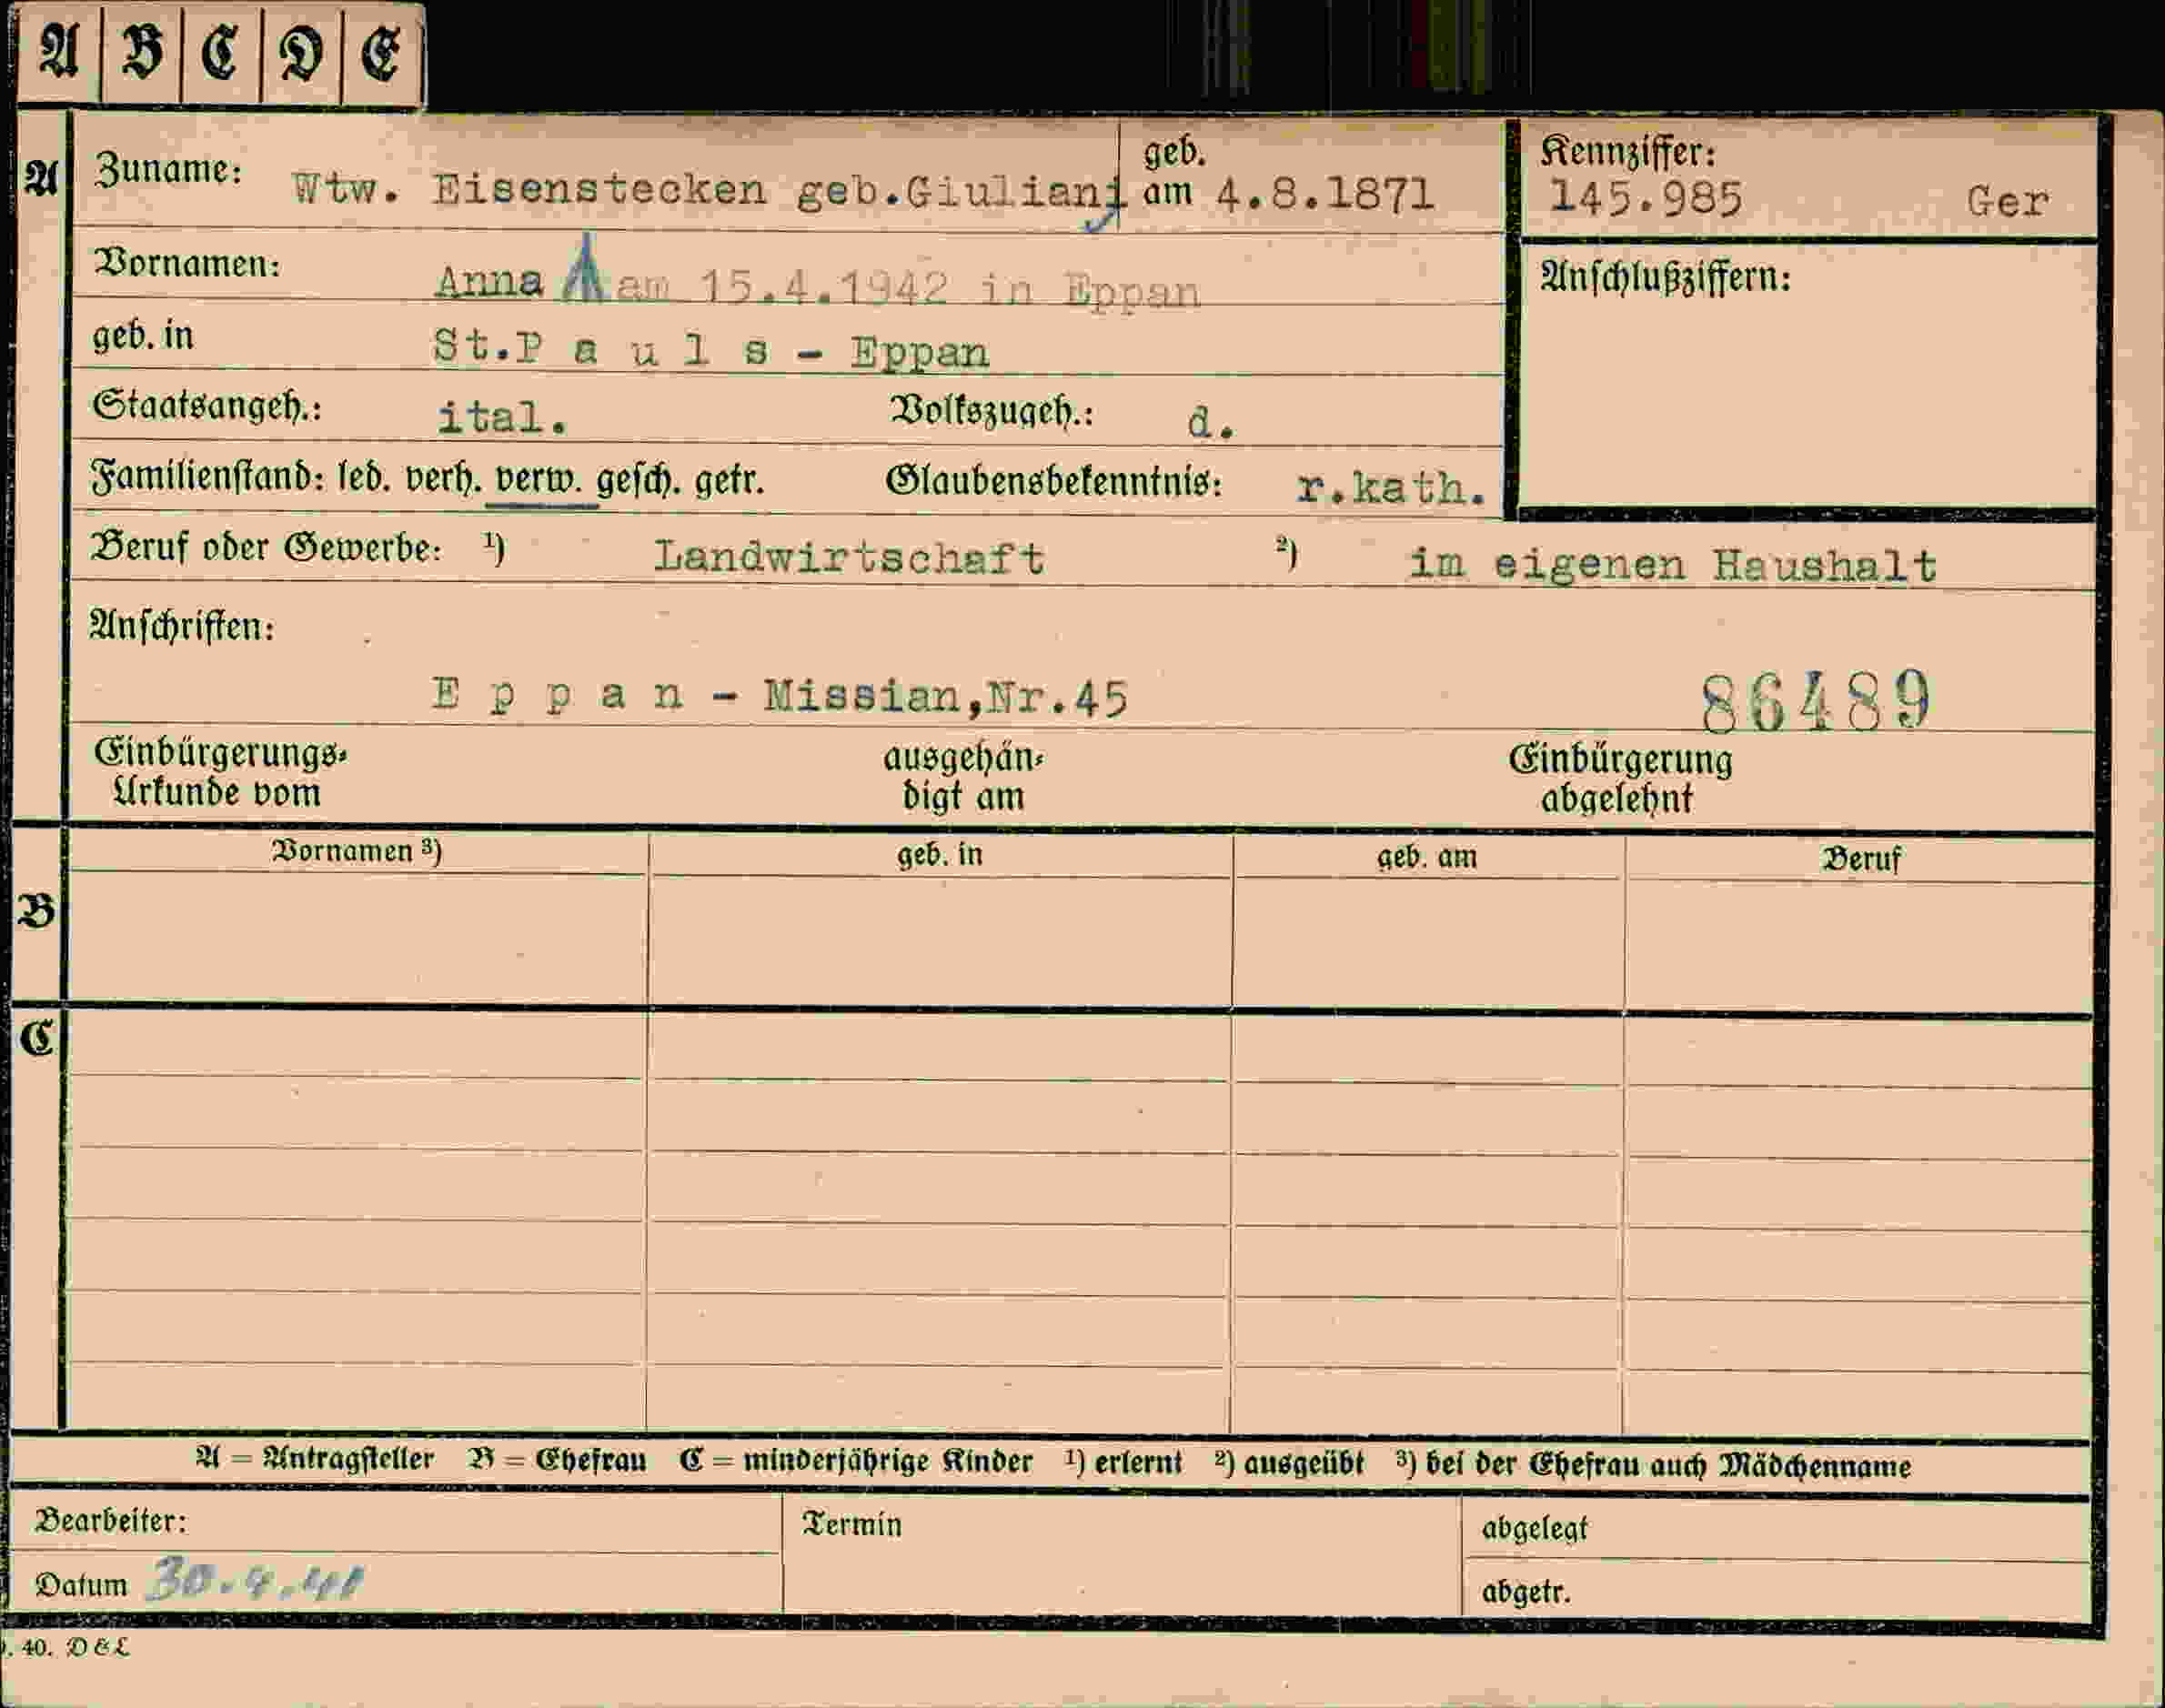 A B C D E
A
Zuname: Wtw. Eisenstecken geb.Giuliani geb. am 4.8.1871
Kennziffer: 145.985 Ger
Vornamen: Anna am 15.4.1942 in Eppan
Anschlußziffern:
geb. in St.P a u l s - Eppan
Staatsangeh.: ital. Volkszugeh.: d.
Familienstand: led. verh. verw. gesch. getr. Glaubensbekenntnis: r.kath.
Beruf oder Gewerbe: 1) Landwirtschaft 2) im eigenen Haushalt
Anschriften:
E p p a n - Missian,Nr.45 86489
Einbürgerungs- Urkunde vom ausgehän- digt am Einbürgerung abgelehnt
B
Vornamen 3) geb. in geb. am Beruf
C
A = Antragsteller B = Ehefrau C = minderjährige Kinder 1) erlernt 2) ausgeübt 3) bei der Ehefrau auch Mädchenname
Bearbeiter: Termin abgelegt
Datum 30.4.41 abgetr.
. 40. D & L